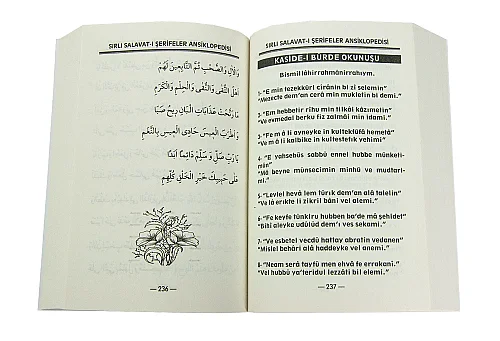 SIRLI SALAVAT-I ŞERİFELER ANSİKLOPEDİSİ
وَالْآلِ وَالصَّحْبِ ثُمَّ التَّابِعِينَ لَهُمْ
أَهْلُ التُّقَى وَالنُّقَى وَالْحِلْمِ وَالْكَرَمِ
مَا رَنَّحَتْ عَذَبَاتِ الْبَانِ رِيحُ صَبَا
وَأَطْرَبَ الْعِيسَ حَادِي الْعِيسِ بِالنَّغَمِ
يَا رَبِّ صَلِّ وَسَلِّمْ دَائِمًا أَبَدًا
عَلَى حَبِيبِكَ خَيْرِ الْخَلْقِ كُلِّهِمِ
— 236 —
SIRLI SALAVAT-I ŞERİFELER ANSİKLOPEDİSİ
KASİDE-İ BÜRDE OKUNUŞU
Bismillâhirrahmânirrahıym.
1- "E min tezekküri cîrânin bi zî selemin"
"Mezecte dem'an cerâ min mukletin bi demi."
2- "Em hebbetir rîhu min tilkâi kâzımetin"
"Ve evmedal berku fiz zalmâi min idami."
3- "Fe mâ li ayneyke in kultekfüfâ hemetâ"
"Ve mâ li kalbike in kultestefik yehimi"
4- "E yahsebüs sabbü ennel hubbe münketi-
min"
"Mâ beyne münsecimin minhü ve mudtari-
mi."
5- "Levlel hevâ lem türık dem'an alâ talelin"
"Ve lâ erıkte li zikril bâni vel alemi."
6- "Fe keyfe tünkiru hubben ba'de mâ şehidet"
"Bihî aleyke udûlüd dem'ı ves sekami."
7- "Ve esbetel vecdü hattay abratin vedanen"
"Mislel behâri alâ haddeyke vel anemi."
8- "Neam serâ tayfü men ehvâ fe errakanî."
"Vel hubbü ya'teridul lezzâti bil elemi."
— 237 —